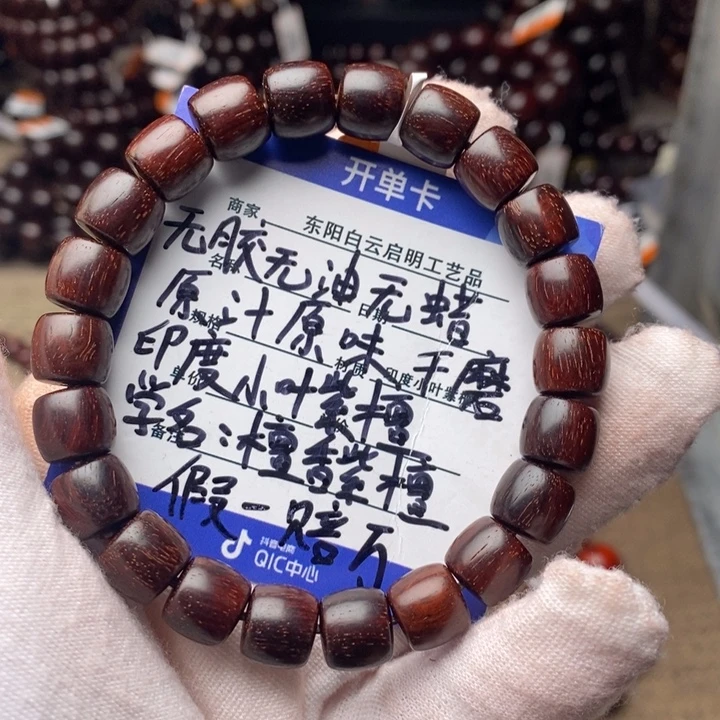 开单卡
商家 东阳白云启明工艺品
无胶无油无蜡
名称
日期
原汁原味 手磨
规格
材质 印度小叶紫檀
印度小叶紫檀
单价
学名:檀香紫檀
备注
假一赔万
抖音电商
QIC中心